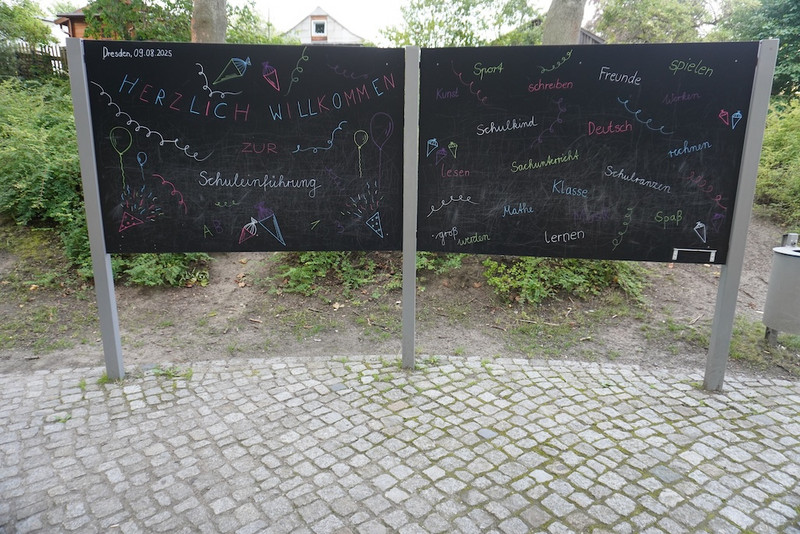 Dresden, 09.08.2025
HERZLICH WILLKOMMEN
ZUR
Schuleinführung
Sport
schreiben
Freunde
spielen
Kunst
Werken
Schulkind
Deutsch
rechnen
Lesen
Sachunterricht
Klasse
Schulranzen
Mathe
Spaß
groß werden
lernen